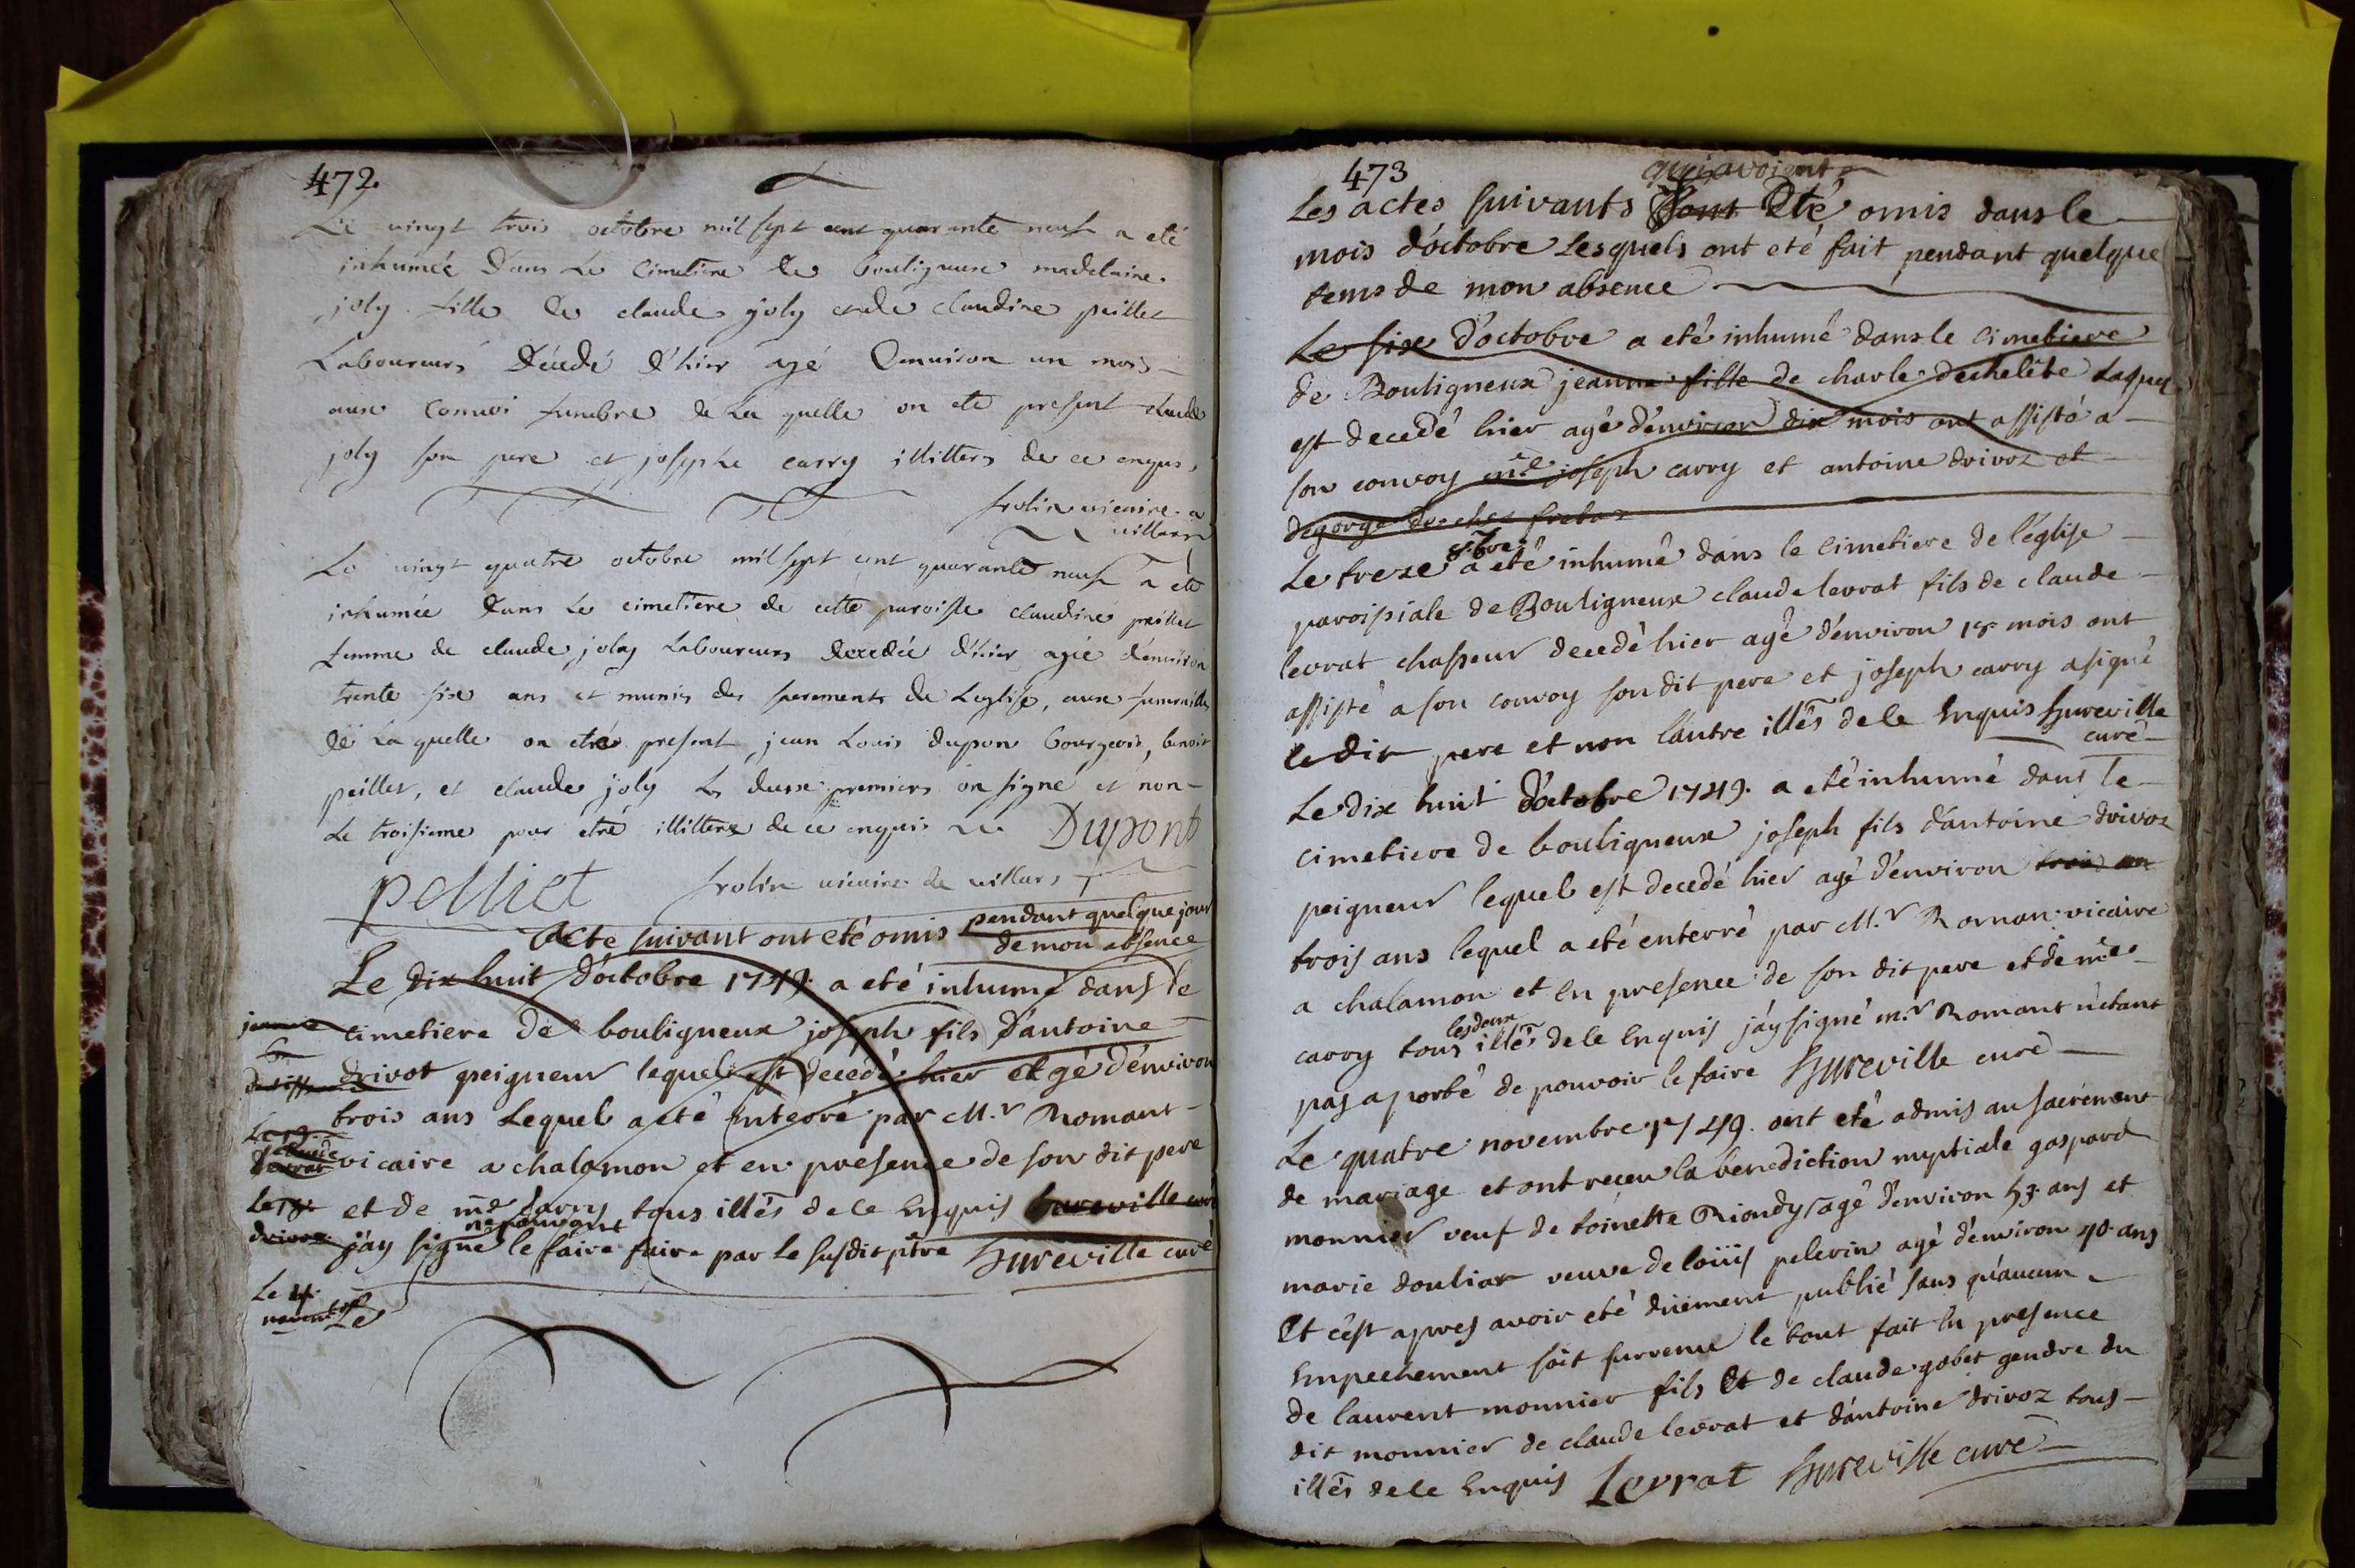 472.
Le vingt trois octobre mil sept cent quarante neuf a eté
inhumée dans le cimetiere de bouligneux madelaine
joly fille de claude joly et de claudine peillet
Laboureurs décédé d'hier agé denviron un mois
aux convoi funebre de la quelle on eté present claude
joly son pere et josephe carry illitters de ce enquis
frolin vicaire a
villars
Le vingt quatre octobre mil sept cent quarante neuf a été
inhumée dans le cimetiere de cette paroisse claudine peillet
femme de claude joly Laboureurs decedée d'hier agée d'environ
trente six ans et munis des sacrements de Leglise, aux funerailles
de la quelle on etré present jean Louis dupon bourgeois, benoit
peillet, et claude joly les deux premiers on signé et non
le troisieme pour etré illitters de ce enquis
Dupont
pelliet frolin vicaire de villars
Acte suivant ont eté omis pendant quelque jour
de mon absence
Le dix huit d'octobre 1749. a eté inhumé dans le
cimetiere de bouligneux joseph fils d'antoine
drivot peigneur lequel est decedé hier agé d'environ
trois ans Lequel a eté enterré par M.r Romant
vicaire a chalamon et en presence de son dit pere
et de me carry tous illés de ce enquis hureville curé
ne pouvant
j'ay signé le faire faire par le susdit ptre hureville curé
jeanne
Le 13.
claude
levrat
Le 18.
drivoz
Le 4.
novembre
Le
473
qui avoient
Les actes suivants sont eté omis dans le
mois d'octobre Lesquels ont eté fait pendant quelque
tems de mon absence
Le six d'octobre a eté inhumé dans le cimetiere
de Bouligneux jeanne fille de charle dechelète Laquel
est decedé hier agé d'environ dix mois ont assisté a
son convoy me joseph carry et antoine drivoz et
8.bre
Le treze a eté inhumé dans le cimetiere de l'église
paroissiale de Bouligneux claude levrat fils de claude
levrat chasseur decedé hier agé d'environ 18 mois ont
assisté a son convoy son dit pere et joseph carry a signé
le dit pere et non l'autre illés de le enquis hureville
curé
Le dix huit d'octobre 1749. a eté inhumé dans le
cimetiere de bouligneux joseph fils d'antoine drivoz
peigneur lequel est decedé hier agé d'environ trois an
trois ans lequel a eté enterré par M.r Roman vicaire
a chalamon et en presence de son dit pere et de me
les deux
carry tous illés de le enquis j'ay signé m.r Romant n'etant
pas a porté de pouvoir le faire hureville curé
Le quatre novembre 1749. ont eté admis au sacrement
de mariage et ont receu la benediction nuptiale gaspard
monnier veuf de toinette Riondy agé d'environ 53. ans et
marie douliar veuve de loüis pelerin agé d'environ 40. ans
Et c'est apres avoir eté düement publié sans qu'aucun
empechement soit survenu le tout fait en presence
de laurent monnier fils et de claude gobet gendre du
dit monnier de claude levrat et d'antoine drivoz tous
illés de le enquis Levrat hureville curé